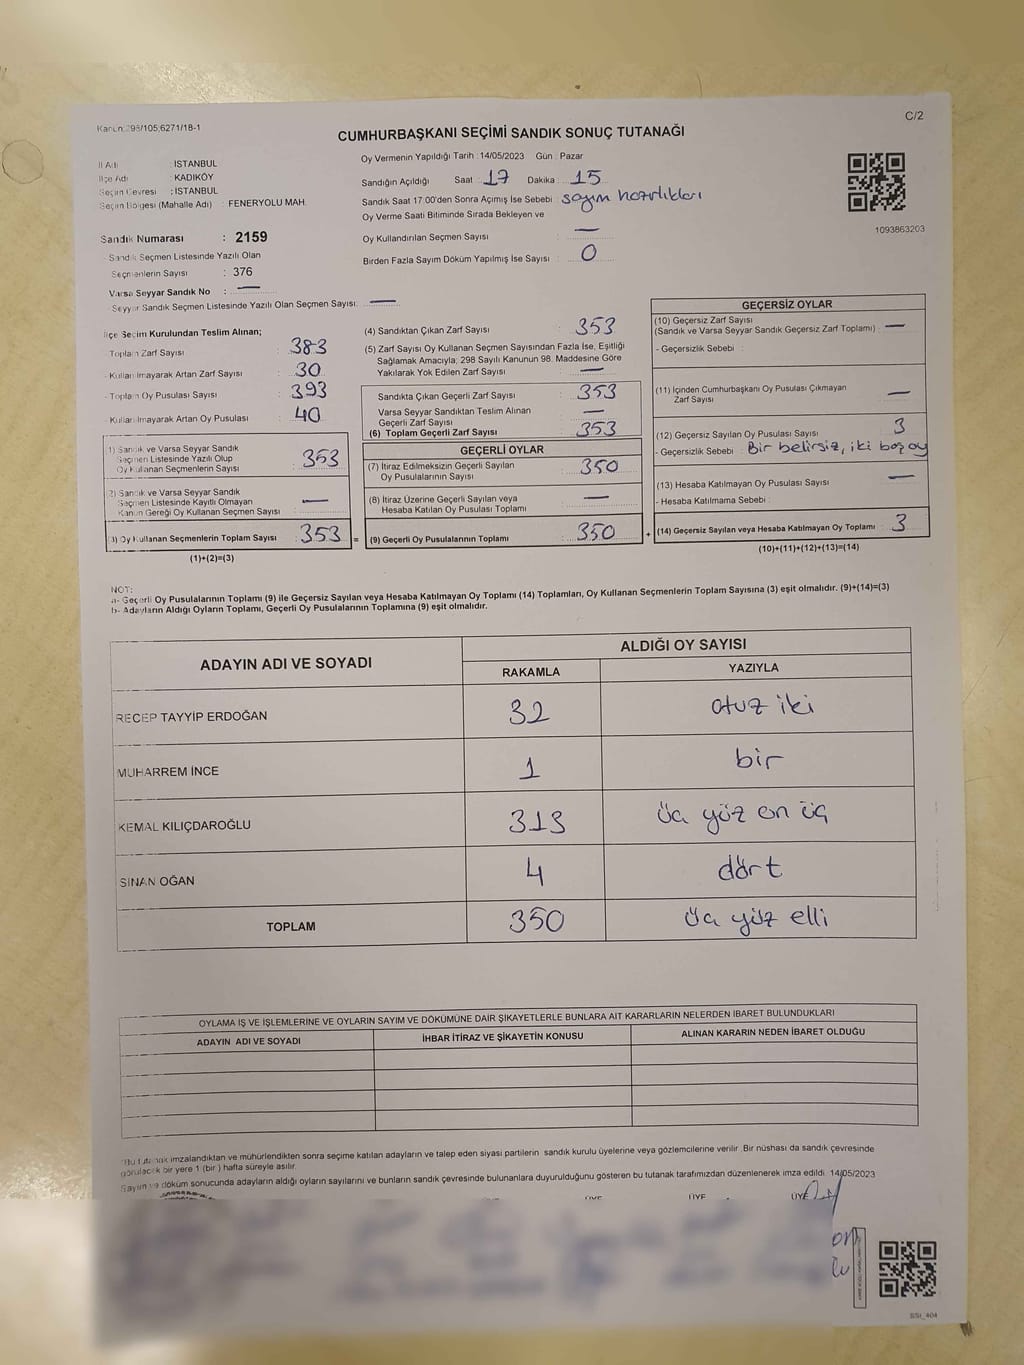 Kanun:298/105;6271/18-1
C/2
CUMHURBAŞKANI SEÇİMİ SANDIK SONUÇ TUTANAĞI
İl Adı : İSTANBUL
İlçe Adı : KADIKÖY
Seçim Çevresi : İSTANBUL
Seçim Bölgesi (Mahalle Adı) : FENERYOLU MAH.
Sandık Numarası : 2159
Sandık Seçmen Listesinde Yazılı Olan
Seçmenlerin Sayısı : 376
Varsa Seyyar Sandık No : —
Seyyar Sandık Seçmen Listesinde Yazılı Olan Seçmen Sayısı: —
Oy Vermenin Yapıldığı Tarih : 14/05/2023 Gün : Pazar
Sandığın Açıldığı Saat : 17 Dakika : 15
Sandık Saat 17:00'den Sonra Açımış İse Sebebi : sayım hazırlıkları
Oy Verme Saati Bitiminde Sırada Bekleyen ve
Oy Kullandırılan Seçmen Sayısı : —
Birden Fazla Sayım Döküm Yapılmış İse Sayısı : 0
1093863203
İlçe Seçim Kurulundan Teslim Alınan;
- Toplam Zarf Sayısı : 383
- Kullanılmayarak Artan Zarf Sayısı : 30
- Toplam Oy Pusulası Sayısı : 393
- Kullanılmayarak Artan Oy Pusulası : 40
(1) Sandık ve Varsa Seyyar Sandık
Seçmen Listesinde Yazılı Olup
Oy Kullanan Seçmenlerin Sayısı : 353
(2) Sandık ve Varsa Seyyar Sandık
Seçmen Listesinde Kayıtlı Olmayan
Kanun Gereği Oy Kullanan Seçmen Sayısı : —
(3) Oy Kullanan Seçmenlerin Toplam Sayısı : 353 =
(1)+(2)=(3)
(4) Sandıktan Çıkan Zarf Sayısı : 353
(5) Zarf Sayısı Oy Kullanan Seçmen Sayısından Fazla İse, Eşitliği
Sağlamak Amacıyla; 298 Sayılı Kanunun 98. Maddesine Göre
Yakılarak Yok Edilen Zarf Sayısı : —
Sandıkta Çıkan Geçerli Zarf Sayısı : 353
Varsa Seyyar Sandıktan Teslim Alınan
Geçerli Zarf Sayısı : —
(6) Toplam Geçerli Zarf Sayısı : 353
GEÇERLİ OYLAR
(7) İtiraz Edilmeksizin Geçerli Sayılan
Oy Pusulalarının Sayısı : 350
(8) İtiraz Üzerine Geçerli Sayılan veya
Hesaba Katılan Oy Pusulası Toplamı : —
(9) Geçerli Oy Pusulalarının Toplamı : 350 +
GEÇERSİZ OYLAR
(10) Geçersiz Zarf Sayısı
(Sandık ve Varsa Seyyar Sandık Geçersiz Zarf Toplamı) : —
- Geçersizlik Sebebi :
(11) İçinden Cumhurbaşkanı Oy Pusulası Çıkmayan
Zarf Sayısı : —
(12) Geçersiz Sayılan Oy Pusulası Sayısı : 3
- Geçersizlik Sebebi : Bir belirsiz, iki boş oy
(13) Hesaba Katılmayan Oy Pusulası Sayısı : —
- Hesaba Katılmama Sebebi :
(14) Geçersiz Sayılan veya Hesaba Katılmayan Oy Toplamı : 3
(10)+(11)+(12)+(13)=(14)
NOT:
a- Geçerli Oy Pusulalarının Toplamı (9) ile Geçersiz Sayılan veya Hesaba Katılmayan Oy Toplamı (14) Toplamları, Oy Kullanan Seçmenlerin Toplam Sayısına (3) eşit olmalıdır. (9)+(14)=(3)
b- Adayların Aldığı Oyların Toplamı, Geçerli Oy Pusulalarının Toplamına (9) eşit olmalıdır.
ADAYIN ADI VE SOYADI ALDIĞI OY SAYISI
RAKAMLA YAZIYLA
RECEP TAYYİP ERDOĞAN 32 otuz iki
MUHARREM İNCE 1 bir
KEMAL KILIÇDAROĞLU 313 üç yüz on üç
SİNAN OĞAN 4 dört
TOPLAM 350 üç yüz elli
OYLAMA İŞ VE İŞLEMLERİNE VE OYLARIN SAYIM VE DÖKÜMÜNE DAİR ŞİKAYETLERLE BUNLARA AİT KARARLARIN NELERDEN İBARET BULUNDUKLARI
ADAYIN ADI VE SOYADI İHBAR İTİRAZ VE ŞİKAYETİN KONUSU ALINAN KARARIN NEDEN İBARET OLDUĞU
"Bu tutanak imzalandıktan ve mühürlendikten sonra seçime katılan adayların ve talep eden siyasi partilerin sandık kurulu üyelerine veya gözlemcilerine verilir. Bir nüshası da sandık çevresinde
görülecek bir yere 1 (bir) hafta süreyle asılır.
Sayım ve döküm sonucunda adayların aldığı oyların sayılarını ve bunların sandık çevresinde bulunanlara duyurulduğunu gösteren bu tutanak tarafımızdan düzenlenerek imza edildi. 14/05/2023
ÜYE ÜYE ÜYE